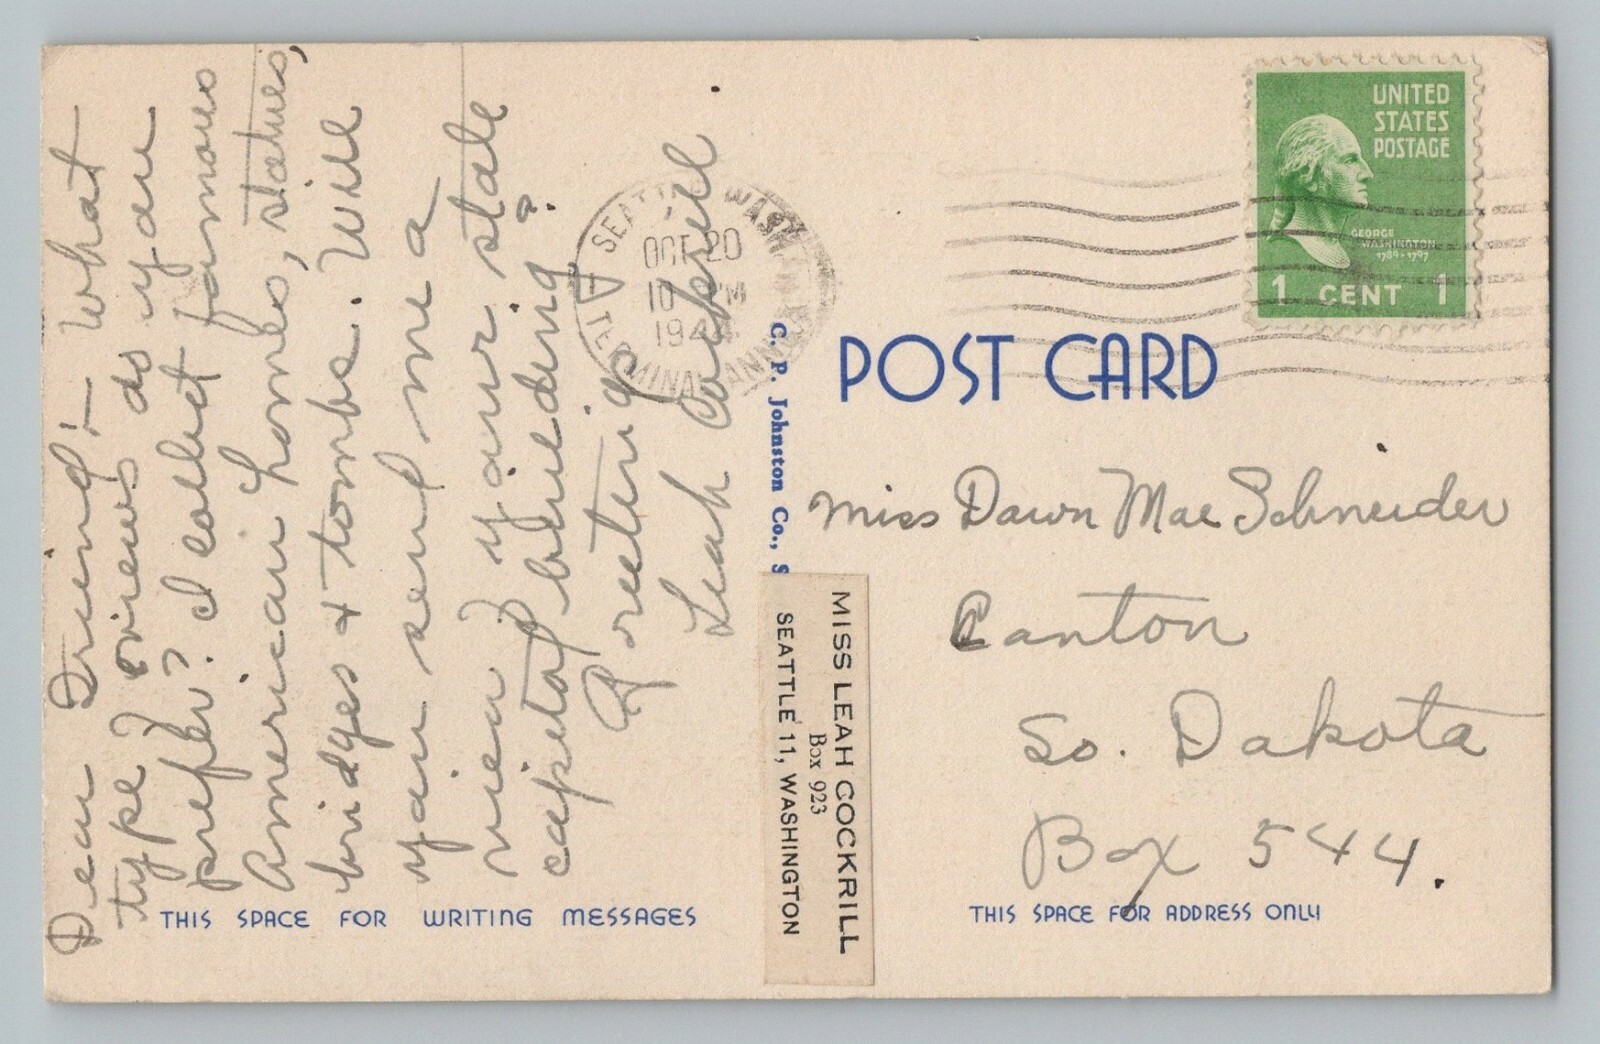 Dear Friend:- What
type views do you
prefer? I collect famous
American homes, statues,
bridges + tombs. Will
you send me a
view of your state
capitol building?
Greetings
Leah Cockrill
SEATTLE WASH
OCT 20
10 PM
194
TERMINAL ANNEX
C. P. Johnston Co., S
MISS LEAH COCKRILL
Box 923
SEATTLE 11, WASHINGTON
THIS SPACE FOR WRITING MESSAGES
UNITED
STATES
POSTAGE
GEORGE
WASHINGTON
1789-1797
1 CENT 1
POST CARD
Miss Dawn Mae Schneider
Canton
So. Dakota
Box 544.
THIS SPACE FOR ADDRESS ONLY